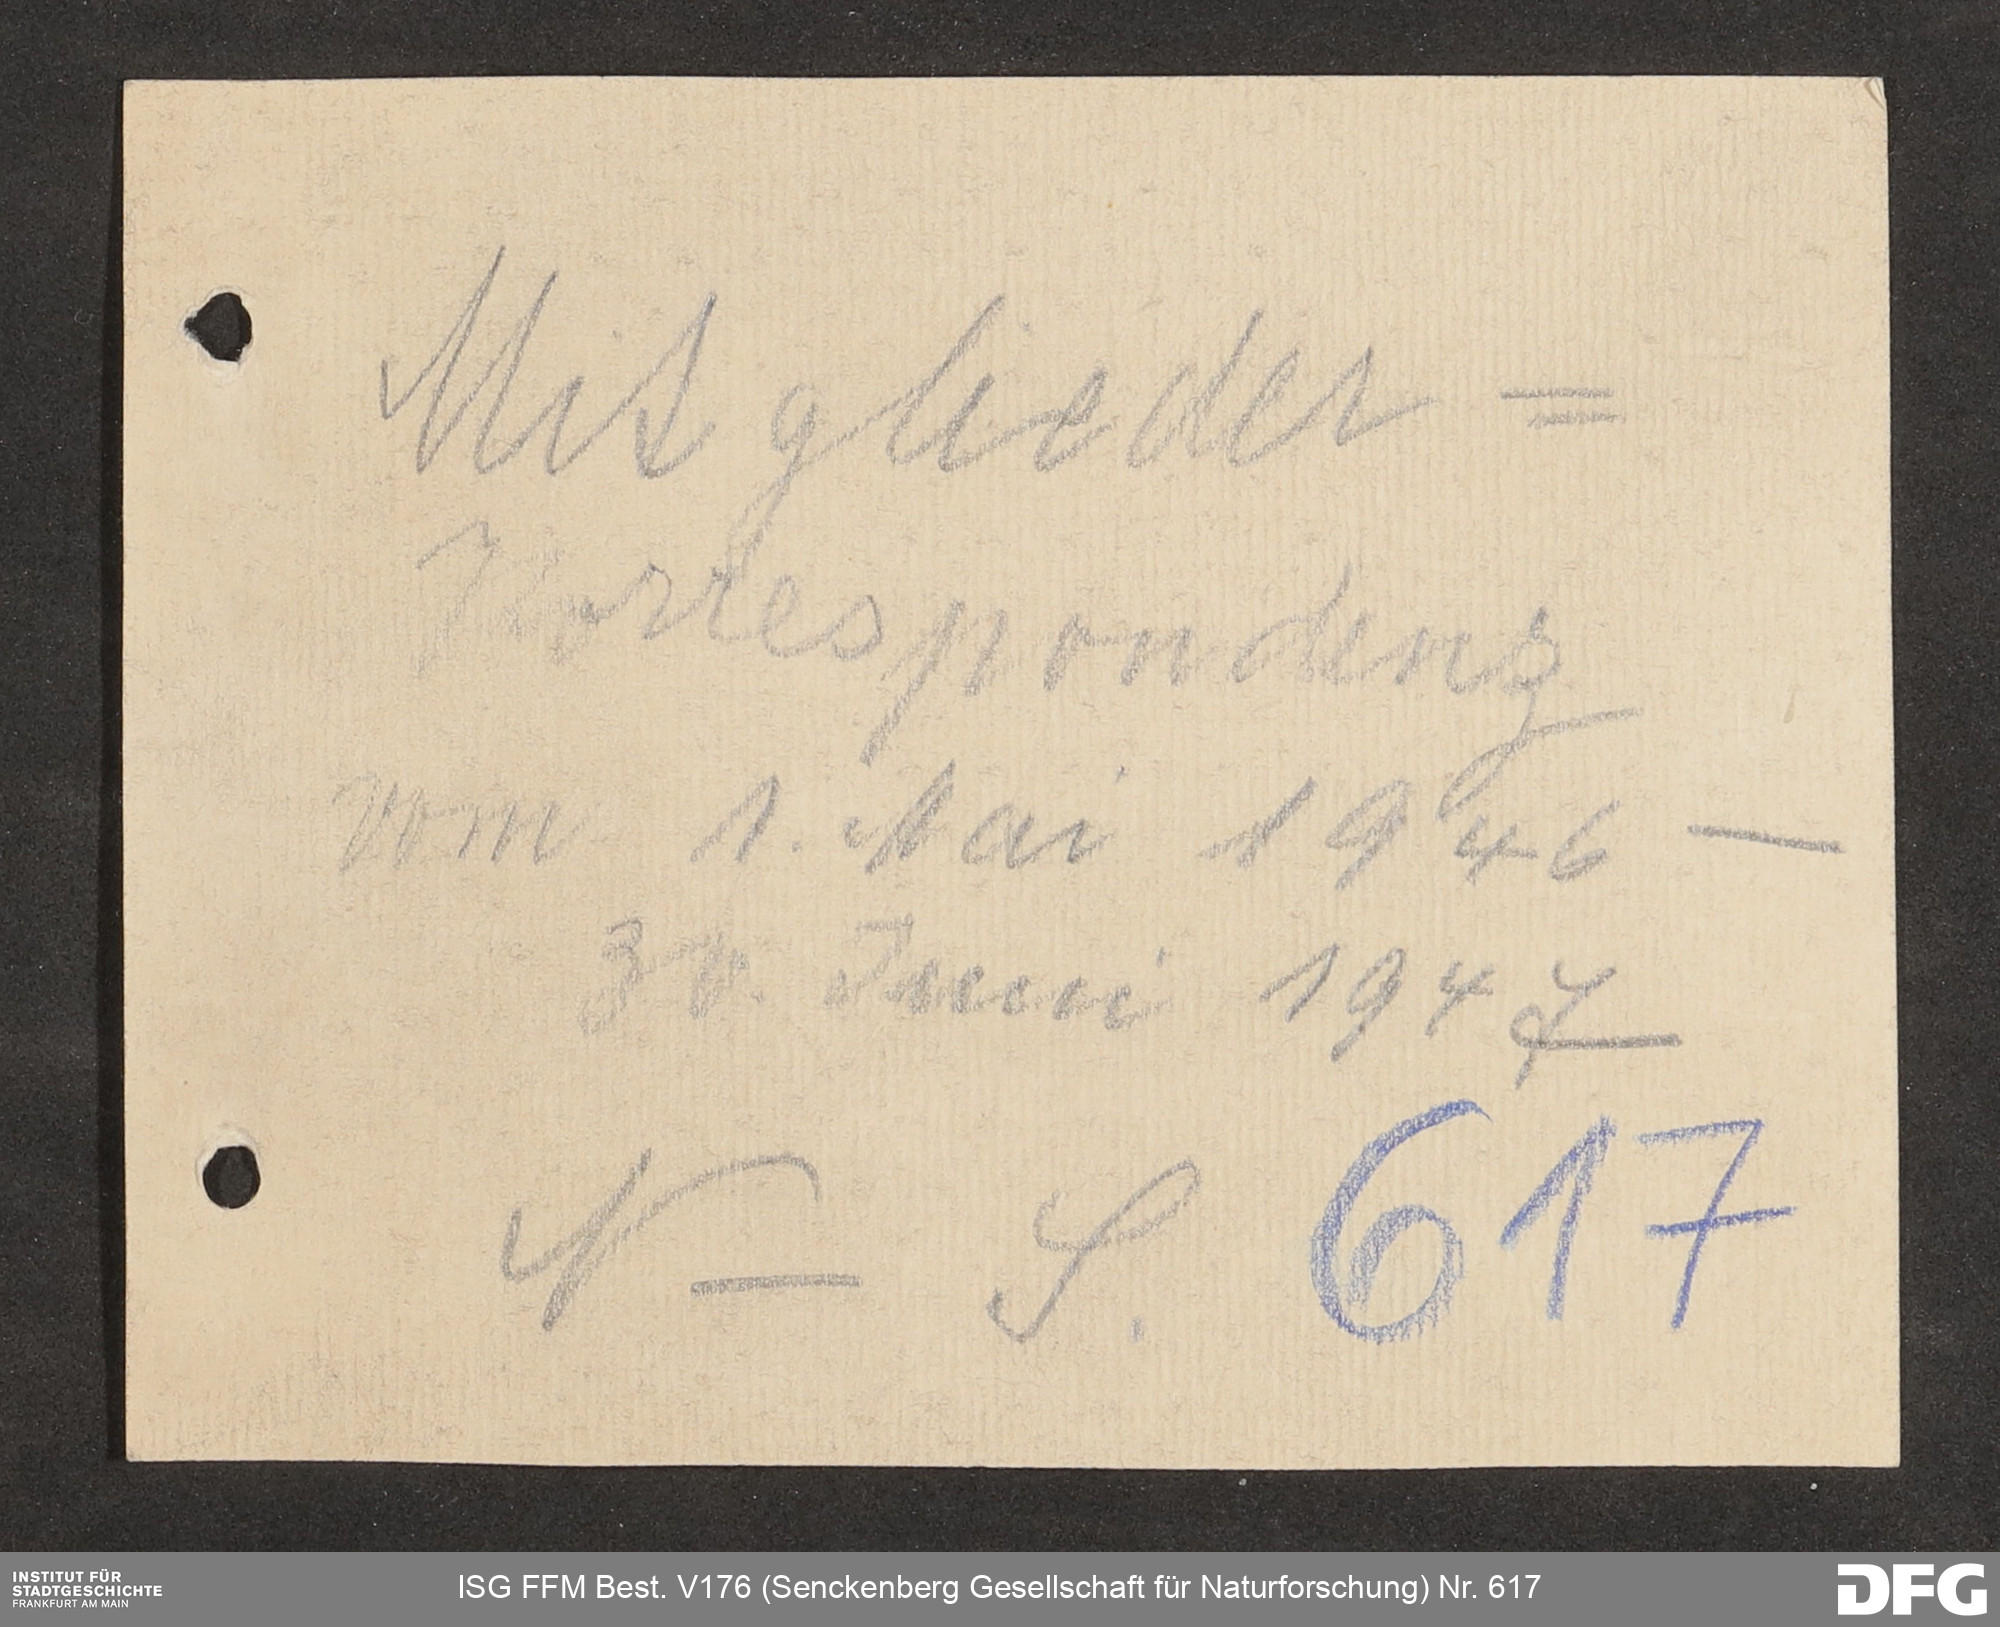 Mitglieder =
Korrespondenz
vom 1. Mai 1946 —
30. Juni 1947
N — S. 617
INSTITUT FÜR
STADTGESCHICHTE
FRANKFURT AM MAIN
ISG FFM Best. V176 (Senckenberg Gesellschaft für Naturforschung) Nr. 617
DFG